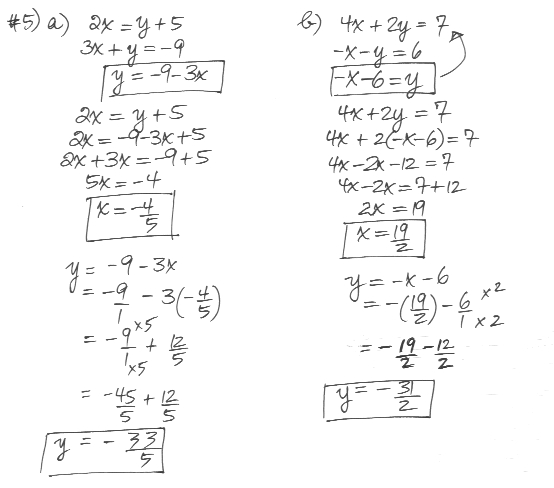 #5) a) 2x = y + 5
3x + y = -9
y = -9 - 3x
2x = y + 5
2x = -9 - 3x + 5
2x + 3x = -9 + 5
5x = -4
x = -4/5
y = -9 - 3x
= -9/1 - 3(-4/5)
= -9/1 ×5 ×5 + 12/5
= -45/5 + 12/5
y = - 33/5
b) 4x + 2y = 7
-x - y = 6
-x - 6 = y
4x + 2y = 7
4x + 2(-x - 6) = 7
4x - 2x - 12 = 7
4x - 2x = 7 + 12
2x = 19
x = 19/2
y = -x - 6
= -(19/2) - 6/1 ×2 ×2
= - 19/2 - 12/2
y = - 31/2